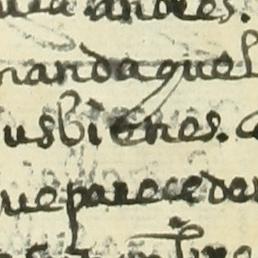 andres.
manda que l
us bienes.
ue parece de